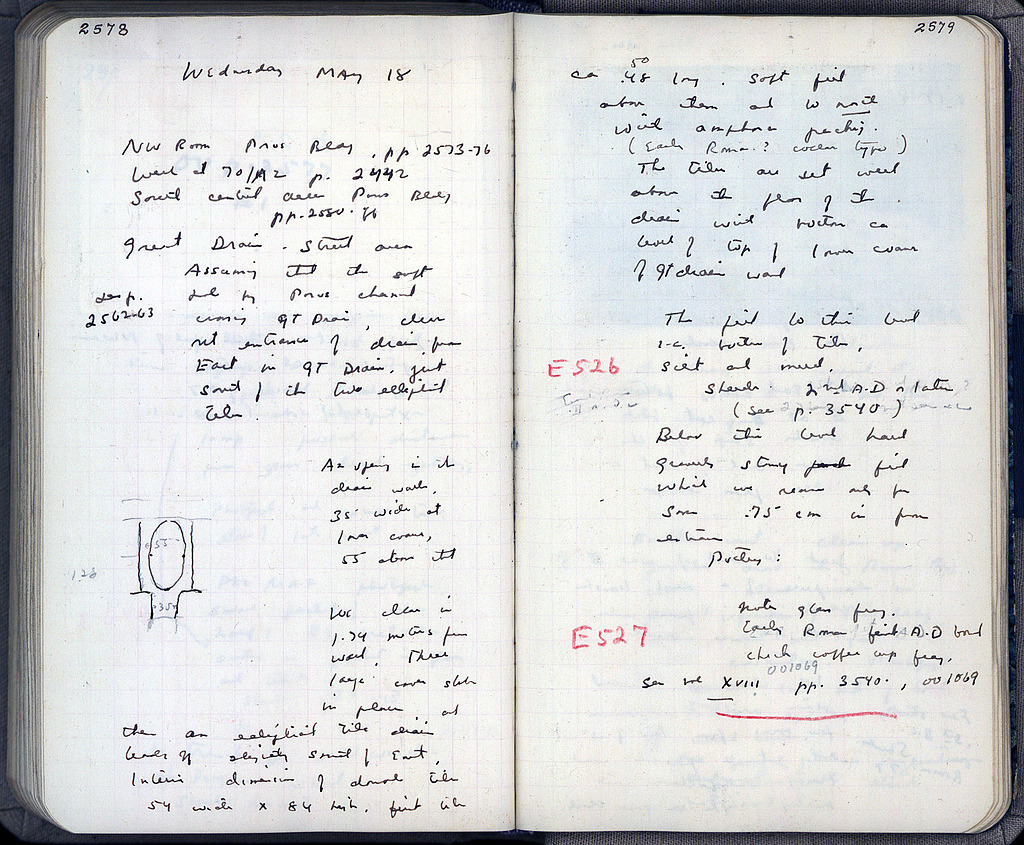 2578
Wednesday May 18
NW Room Poros Bldg, pp 2573-76
West at 70/ p. 2442
South central area Poros Bldg
pp. 2580-
Great Drain - Street area
Assuming that the soft
by Poros channel
see p.
2562-63
crossing GT Drain, clear
out entrance of drain from
East in GT Drain, just
South of the two elliptical
tiles.
An opening in the
drain wall,
35 wide at
lower course,
55 above that
.55
.35
1.28
We clear in
1.74 meters from
wall. Three
large cover slabs
in place and
then an elliptical tile drain
leads off slightly South of East,
Interior dimension of drain tile
54 wide x 84 high, first tile
2579
50
ca .48 long. Soft fill
above them and to north
with amphora packing.
(Early Roman? type)
The tiles are set well
above the floor of the
drain with bottom ca
level of top of lower course
of GT drain wall
The fill to this level
i.e. bottom of tiles,
E 526
silt and mud.
Sherds 2nd A.D or later
(See p. 3540)
Below this level hard
gravelly stony fill
which we remove only for
some .75 cm in from
entrance
Pottery:
Note glass frag.
E 527
Early Roman first A.D bowl
check coffee cup frag.
001069
See vol XVIII pp. 3540., 001069